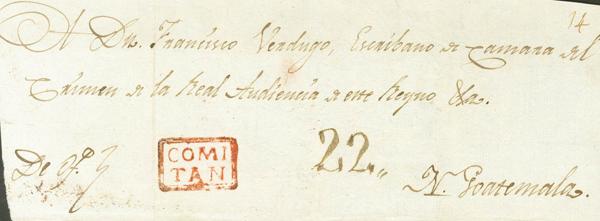 14
A Dn. Francisco Verdugo, Escribano de Camara del
Crimen de la Real Audiencia de este Reyno &a.
De Of.o
COMI
TAN
22,,
N. Goatemala.